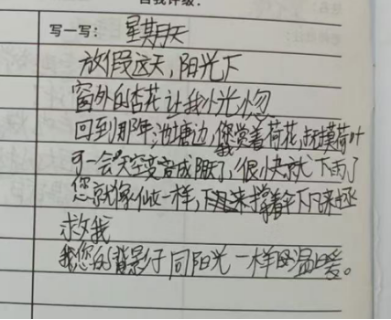 自我评级：
写一写： 星期天
放假这天，阳光下
窗外的杏花让我恍惚
回到那年池塘边，您赏着荷花，我摸荷叶
可一会天空变成阴天，很快就下雨了
您就像仙女一样，撑着伞下凡来拯
救我
您的背影子同阳光一样的温暖。